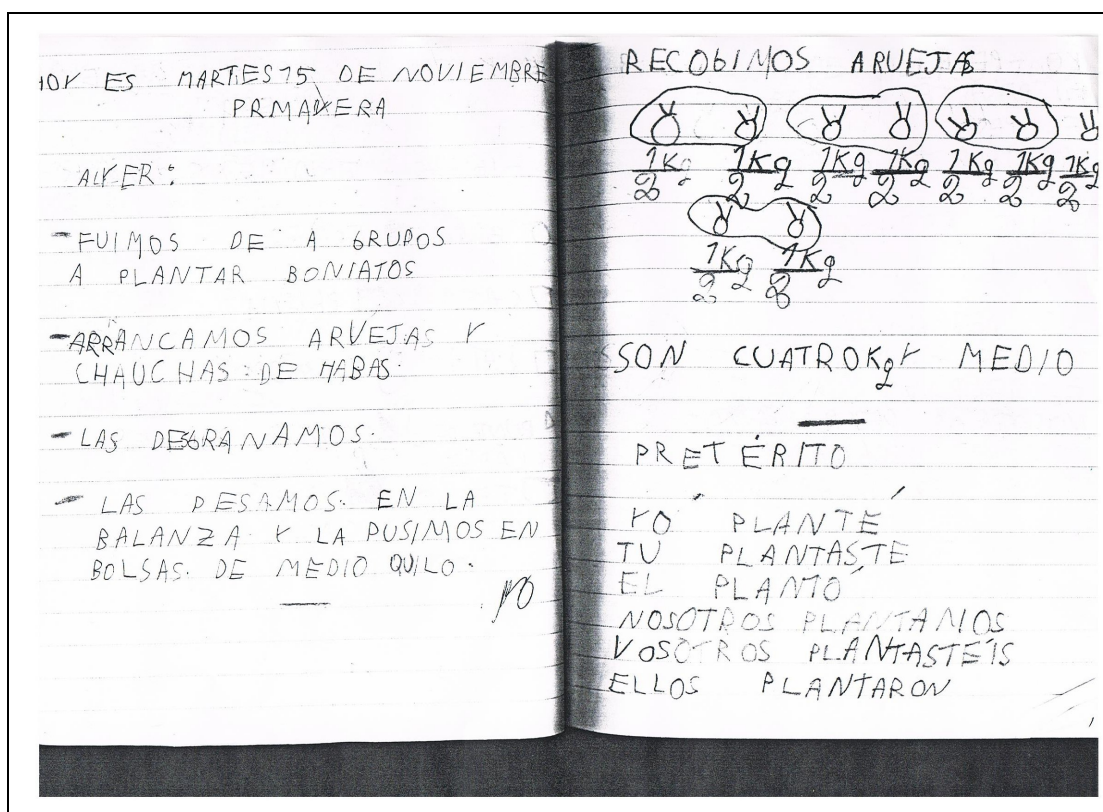 HOY ES MARTES 15 DE NOVIEMBRE
PRMAVERA
ALYER:
- FUIMOS DE A GRUPOS
A PLANTAR BONIATOS
- ARRANCAMOS ARVEJAS Y
CHAUCHAS DE HABAS.
- LAS DESGRANAMOS.
- LAS PESAMOS. EN LA
BALANZA Y LA PUSIMOS EN
BOLSAS. DE MEDIO QUILO.
RECOGIMOS ARVEJAS
1/2 Kg 1/2 Kg 1/2 Kg 1/2 Kg 1/2 Kg 1/2 Kg 1/2 Kg
1/2 Kg 1/2 Kg
SON CUATRO Kg Y MEDIO
PRETÉRITO
YO PLANTÉ
TU PLANTASTE
EL PLANTÓ
NOSOTROS PLANTAMOS
VOSOTROS PLANTASTEIS
ELLOS PLANTARON